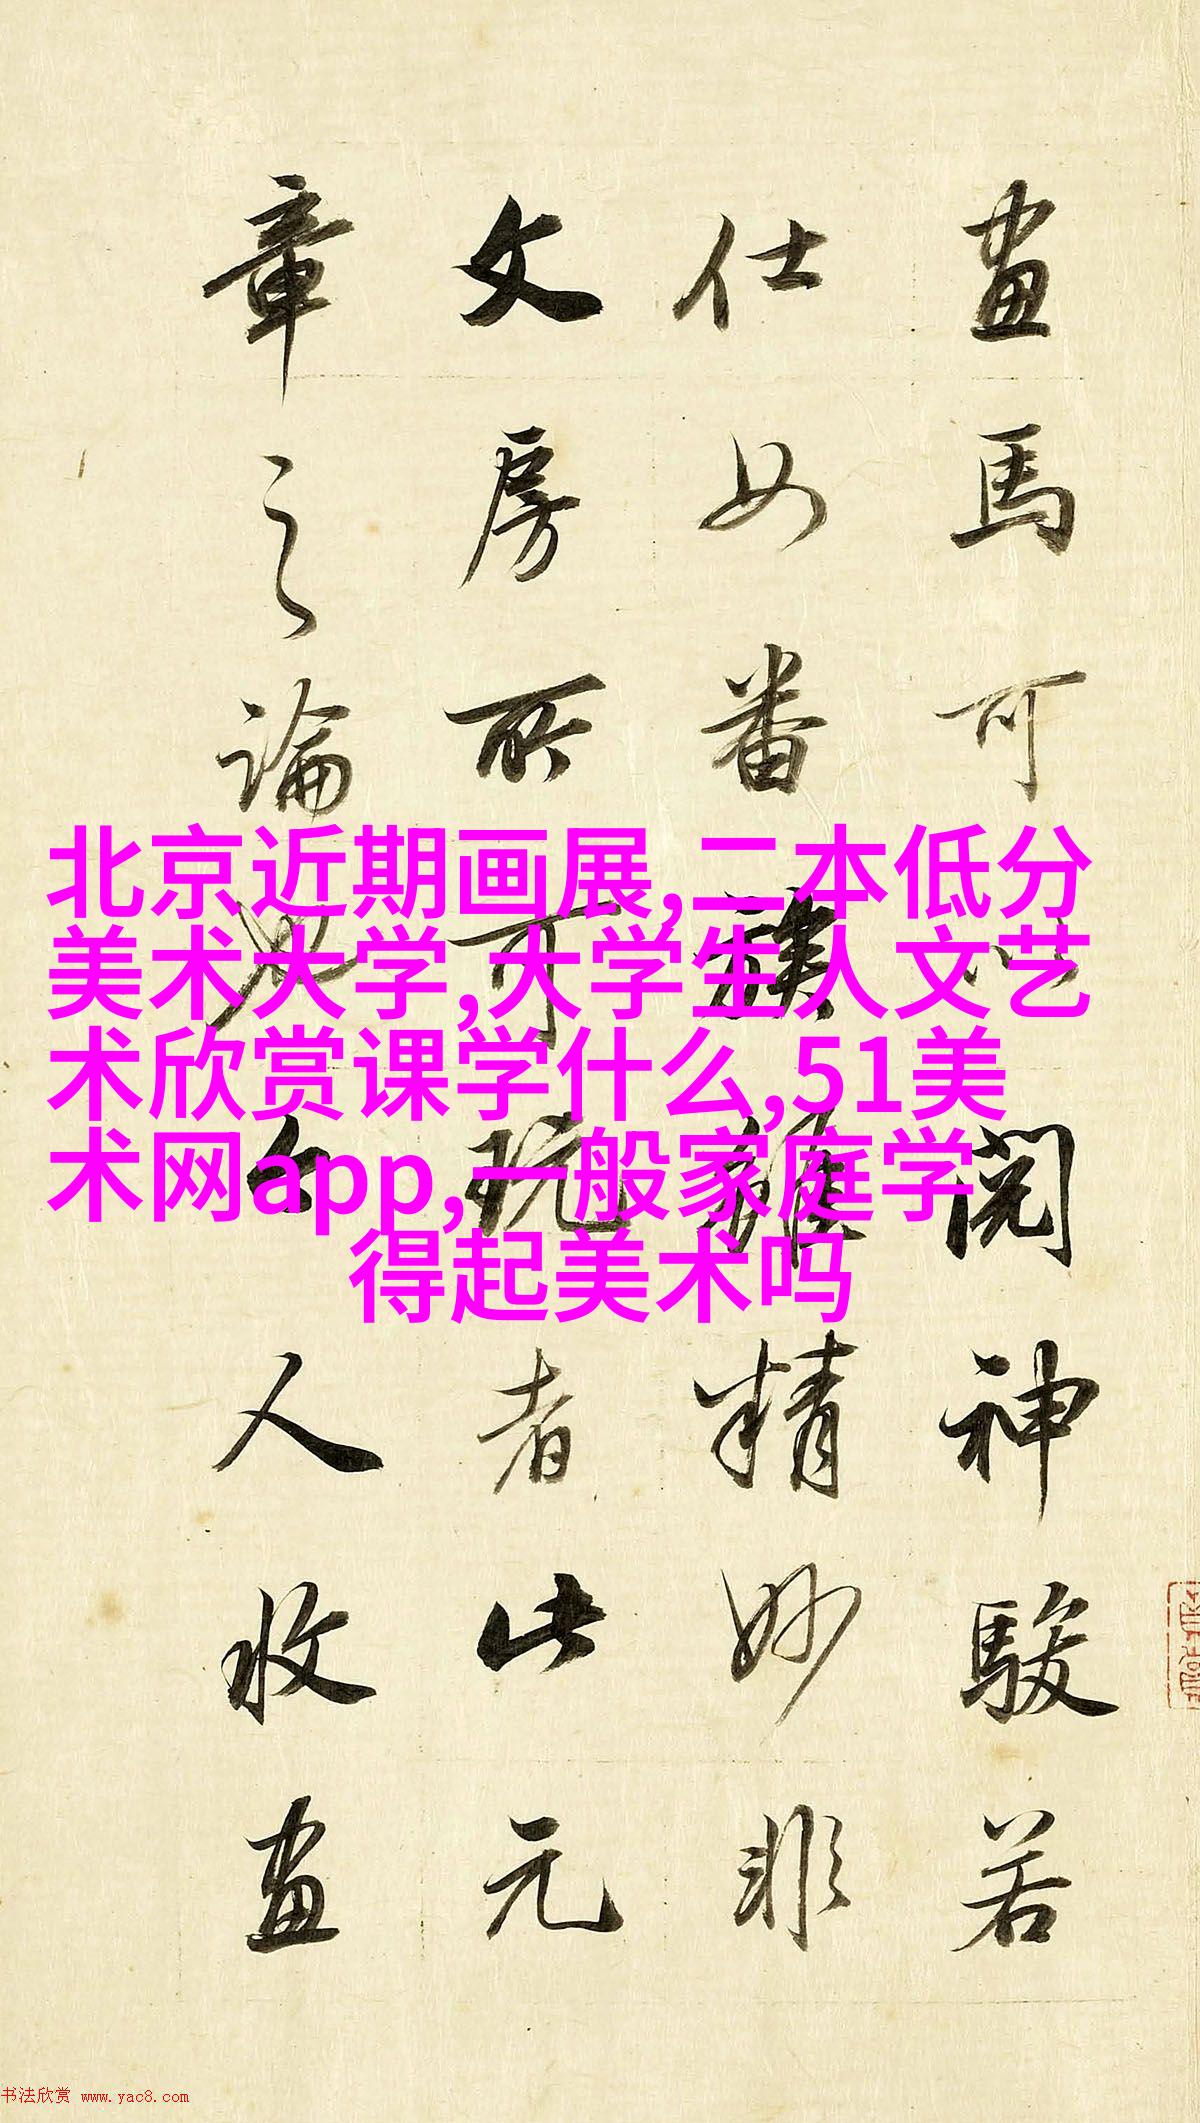 畫馬可以閱神駿若
仕女番族雖精妙非
文房所可玩者此元
章之論也今人收畫
北京近期画展,二本低分
美术大学,大学生人文艺
术欣赏课学什么,51美
术网app,一般家庭学
得起美术吗
书法欣赏 www.yac8.com